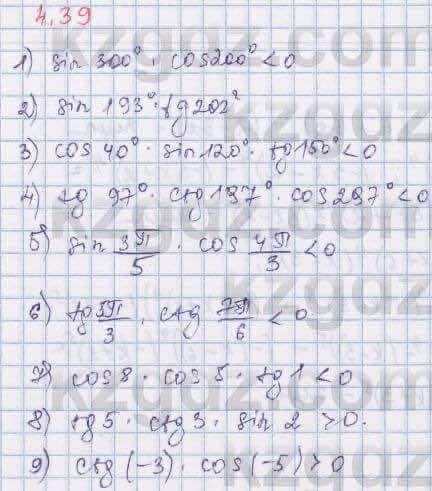 4.39
1) sin 300° · cos200° < 0
2) sin 193° · tg202°
3) cos 40° · sin120° · tg150° < 0
4) tg 97° · ctg197° · cos297° < 0
5) sin 3π/5 · cos 4π/3 < 0
6) tg 5π/3 · ctg 7π/6 < 0
7) cos8 · cos5 · tg1 < 0
8) tg5 · ctg3 · sin 2 > 0.
9) ctg(-3) · cos(-5) > 0
kzgdz.com